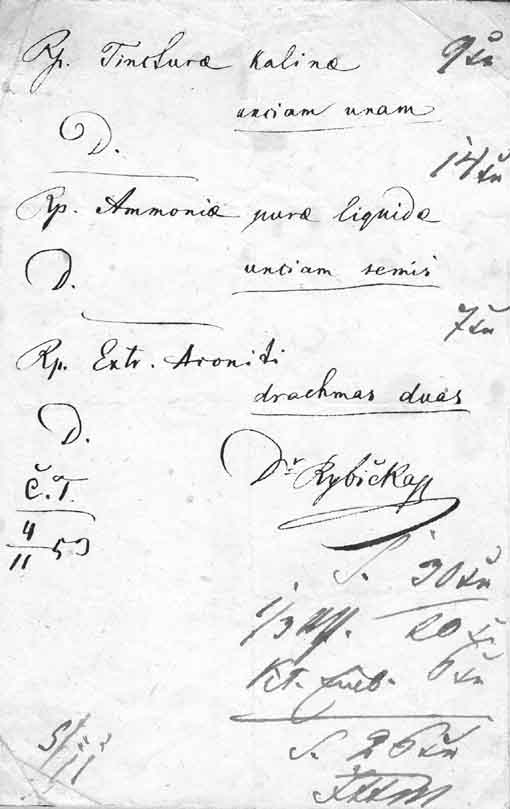 Rp. Tincturæ Kalinæ 9 xn
unciam unam
D.
14 xn
Rp. Ammoniæ puræ liquidæ
unciam semis
D.
7 xn
Rp. Extr. Aconiti
drachmas duas
D.
Dr Rybička
Č.T.
4/11 53
S. 30 xn
1/3 20 x
6 xn
S. 26 xn
5/11